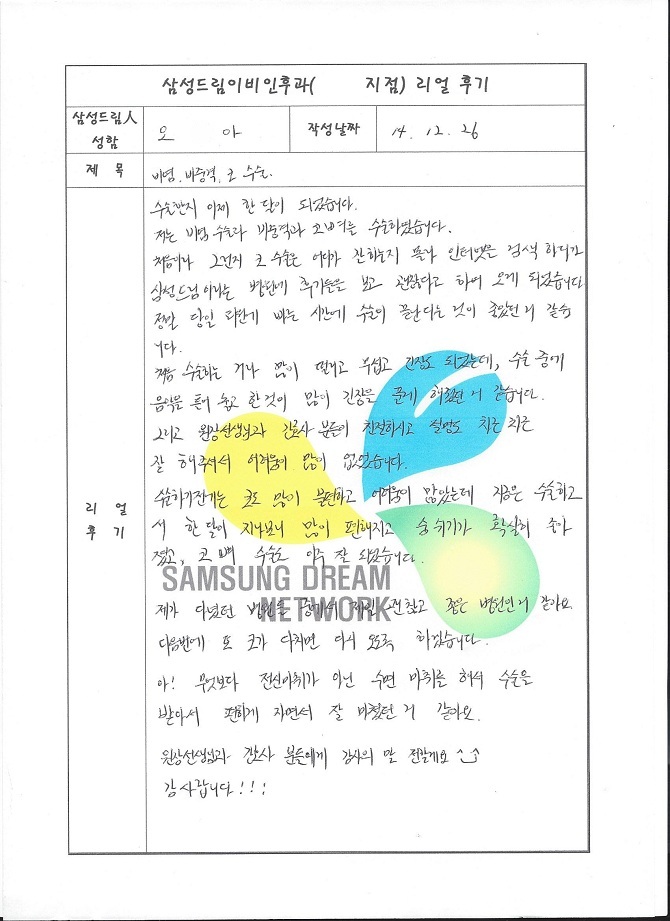 삼성드림이비인후과( 지점) 리얼 후기
삼성드림人
성함
오 아
작성날짜
14. 12. 26
제 목
비염, 비중격, 코 수술.
리 얼
후 기
수술한지 이제 한 달이 되었습니다.
저는 비염 수술과 비중격과 코뼈를 수술하였습니다.
처음이나 그런지 코 수술은 어디가 잘하는지 몰라 인터넷을 검색 하다가
삼성드림이라는 병원에 후기들을 보고 괜찮다고 하여 오게 되었습니다
정말 당일 하는 시간에 수술이 끝난다는 것이 좋았던 거 같습
니다.
처음 수술하는 거라 많이 떨리고 무섭고 긴장도 되었는데, 수술 중에
음악을 틀어 놓고 한 것이 많이 긴장을 풀게 해줬던 거 같습니다.
그리고 원장선생님과 간호사 분들이 친절하시고 설명도 차근차근
잘 해주셔서 어려움이 많이 없었습니다.
수술하기전까는 코도 많이 불편하고 어려움이 많았는데 지금은 수술하고
서 한 달이 지나보니 많이 편해지고 숨쉬기가 확실히 좋아
졌고, 코 뼈 수술도 아주 잘 되었습니다.
SAMSUNG DREAM
NETWORK
제가 다녔던 병원들 중에서 제일 괜찮고 좋은 병원인거 같아요
다음번에 또 코가 다치면 다시 오도록 하겠습니다.
아! 무엇보다 전신마취가 아닌 수면 마취를 해서 수술을
받아서 편하게 자면서 잘 마쳤던 거 같아요.
원장선생님과 간호사 분들에게 감사의 말 전할게요
감사합니다!!!